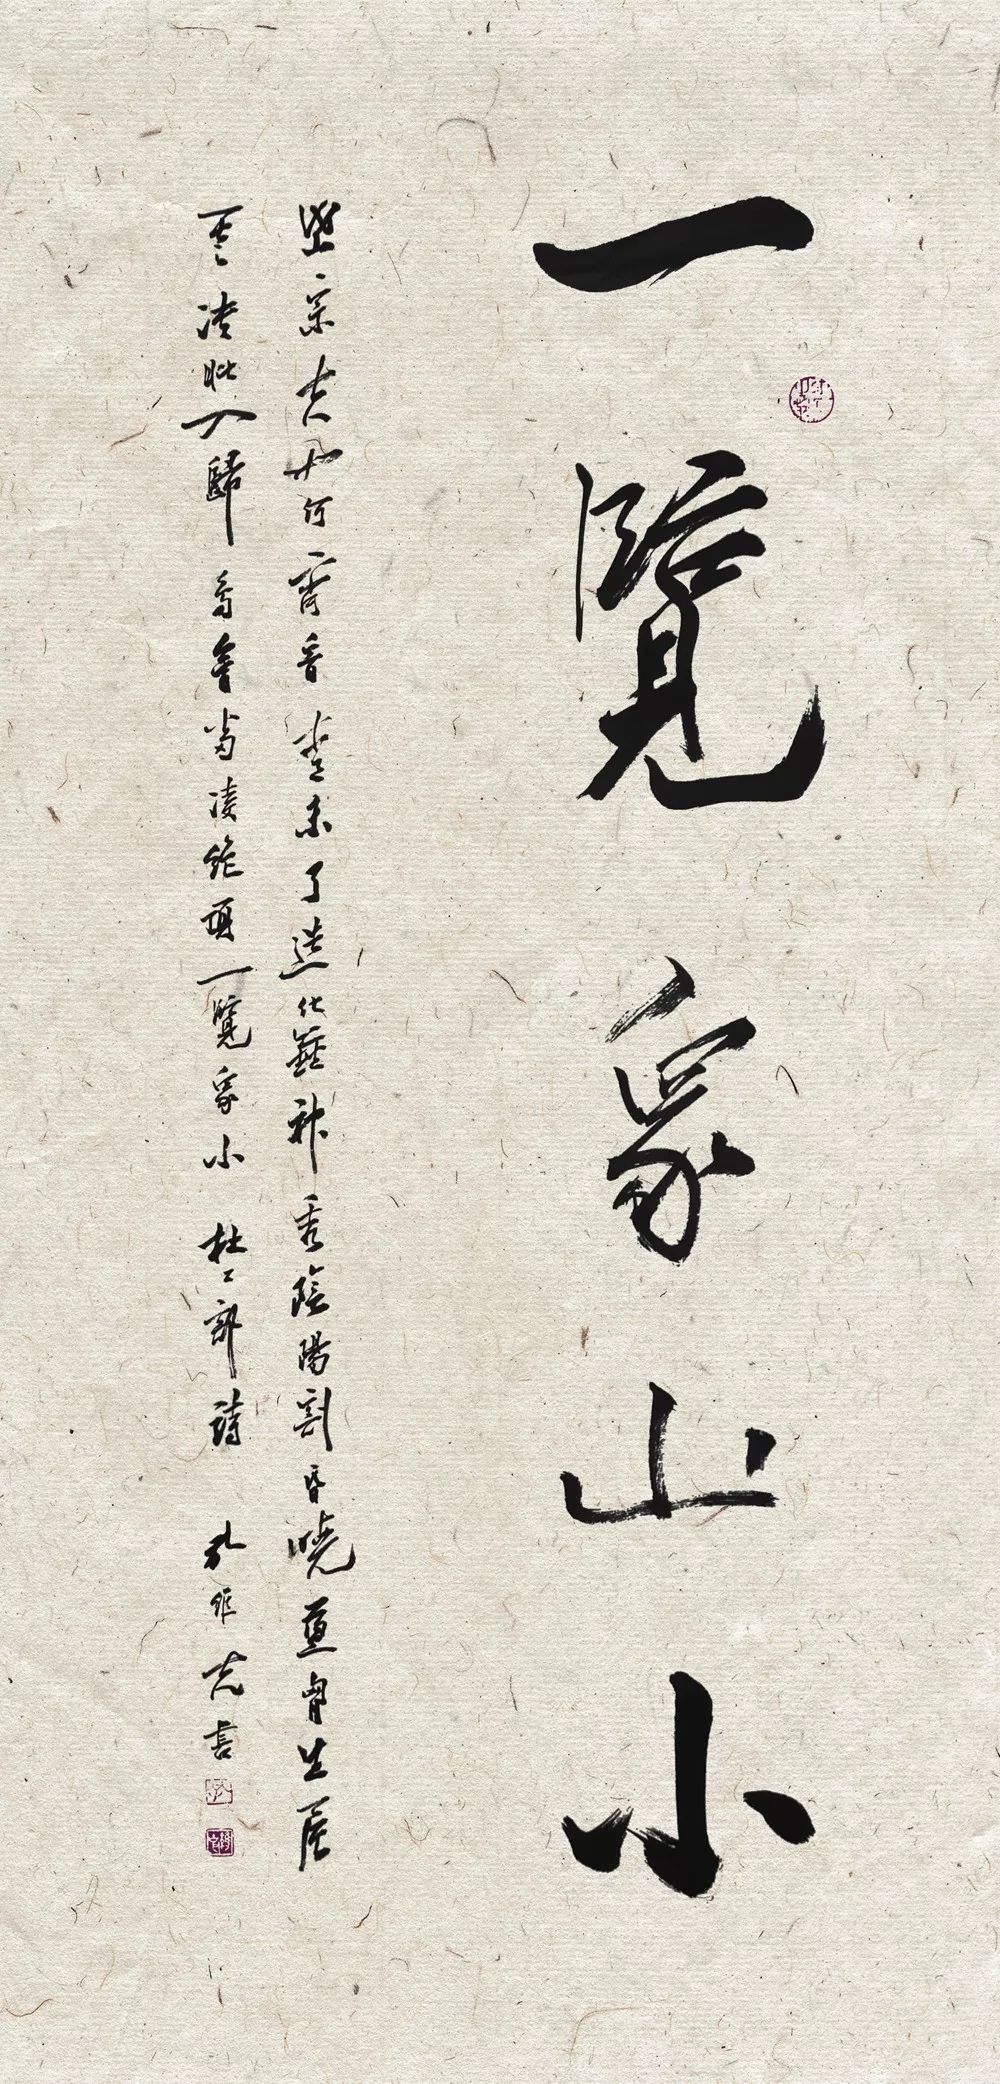 一覽衆山小
岱宗夫如何齊魯青未了造化鍾神秀陰陽割昏曉盪胸生層
雲決眥入歸鳥會當凌絕頂一覽衆小 杜工部詩 孔維克書